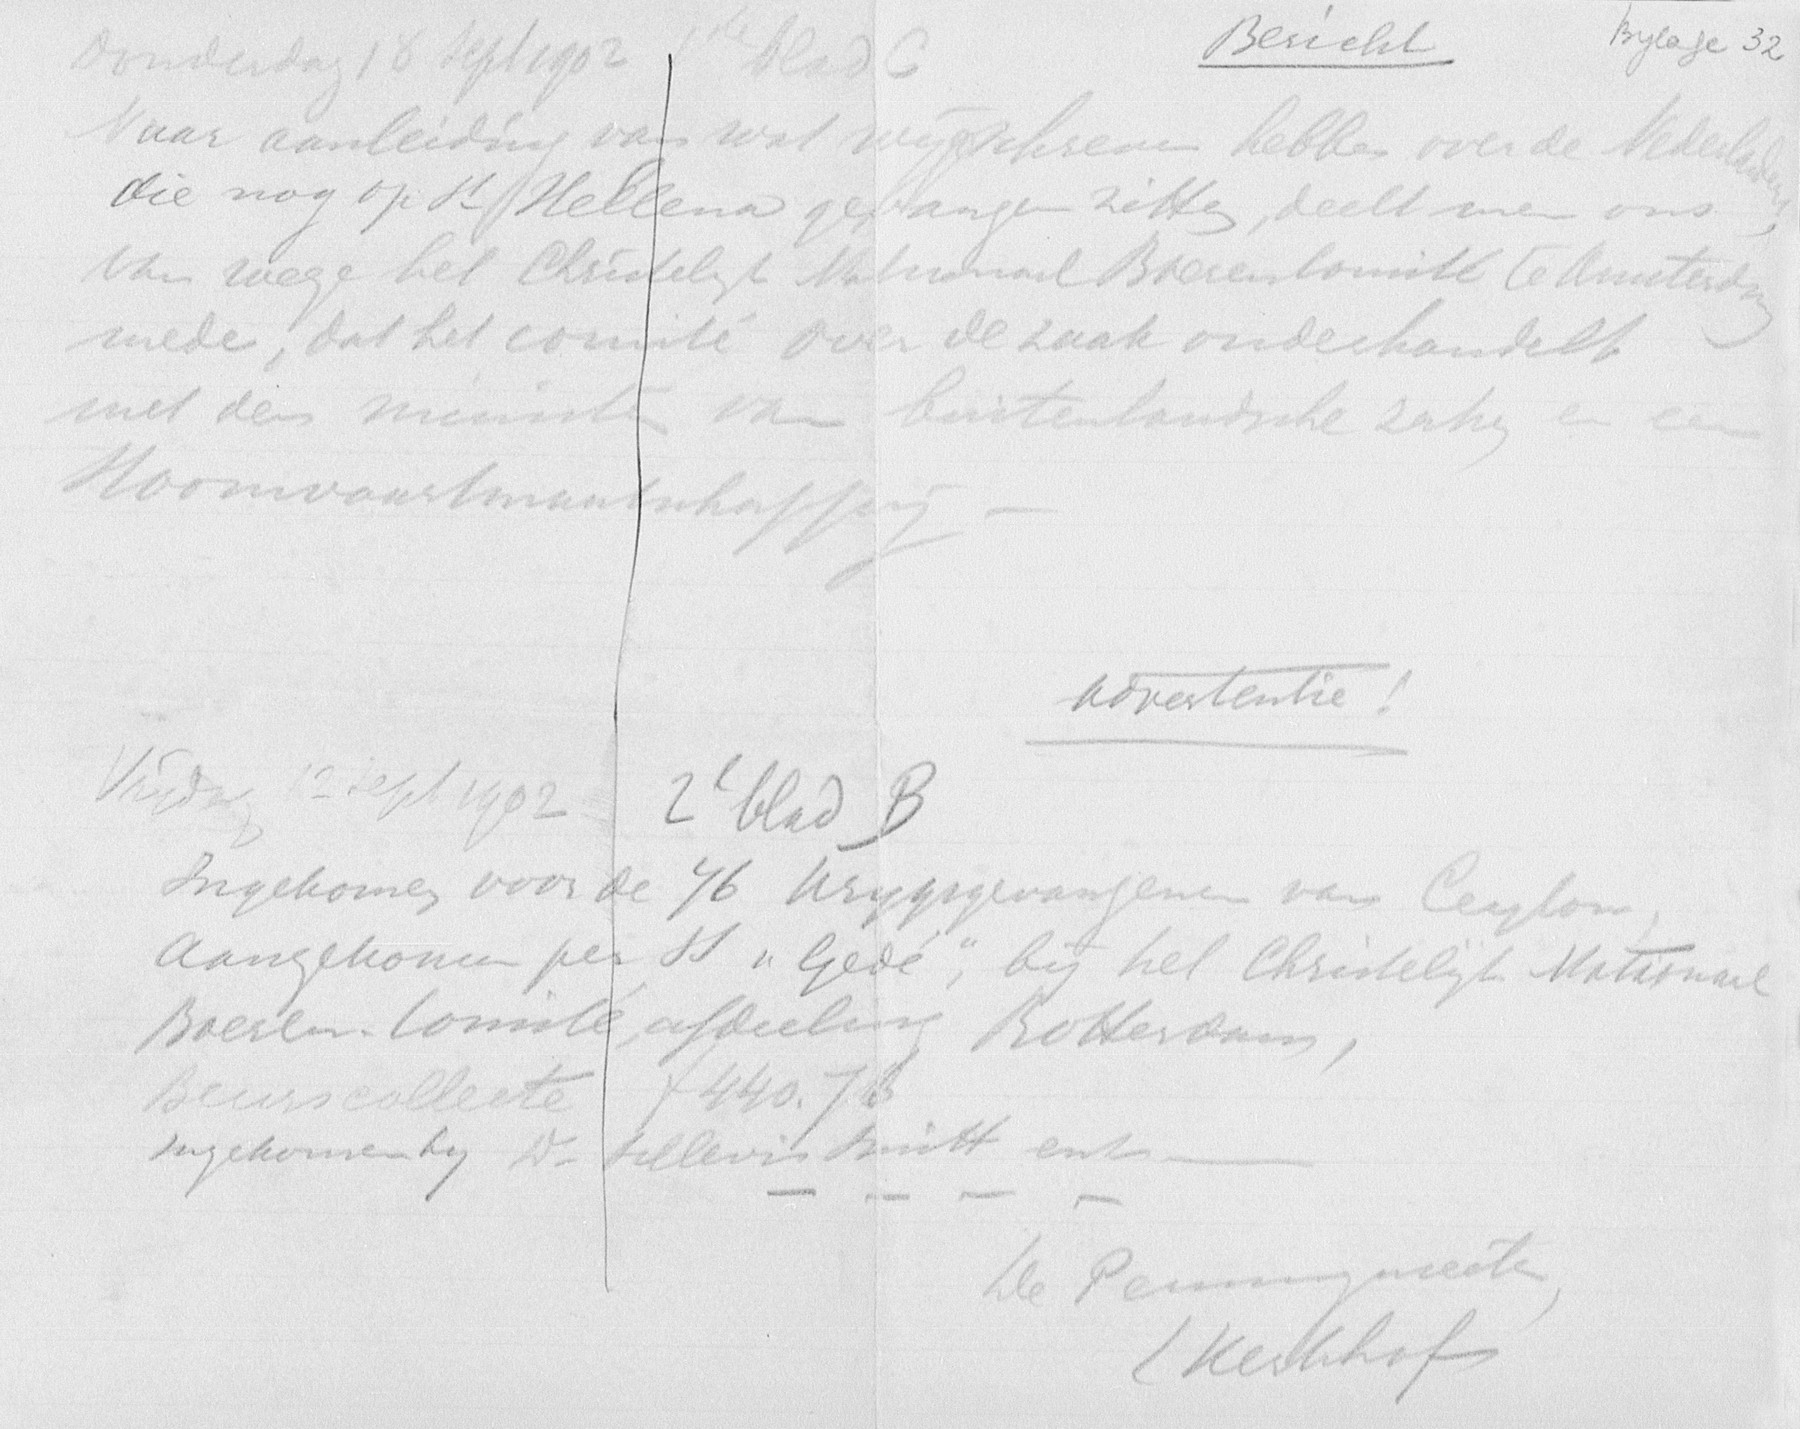 Bericht
Bylage 32
Donderdag 18 Sept 1902 1ste blad C
Naar aanleiding van wat wij schreven hebben over de Nederlanders,
die nog op St Hellena gevangen zitten, deelt men ons
van wege het Christelijk Nationaal Boeren Comité te Amsterdam
mede, dat het comité over de zaak onderhandelt
met den minister van buitenlandsche zaken en een
Stoomvaartmaatschappij —
Advertentie!
Vrijdag 12 Sept 1902 2e blad B
Ingekomen voor de 46 Krygsgevangenen van Ceylon,
aangekomen per SS „Gedé", bij het Christelijk Nationaal
Boeren-Comité, afdeeling Rotterdam,
Beurscollecte f 440.
Ingekomen by Ds Sillevis Smitt enz —
— — — —
De Penningmeester,
L Kerkhof